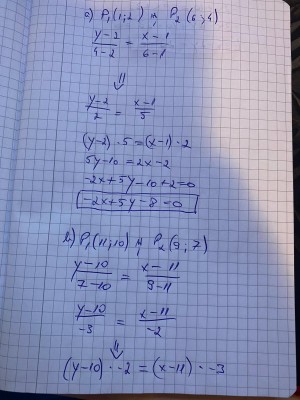 a) P₁(1;2) и P₂(6;4)
y-2/4-2 = x-1/6-1
⇓
y-2/2 = x-1/5
(y-2)·5=(x-1)·2
5y-10=2x-2
-2x+5y-10+2=0
-2x+5y-8=0
b) P₁(11;10) и P₂(9;7)
y-10/7-10 = x-11/9-11
y-10/-3 = x-11/-2
⇓
(y-10)·-2=(x-11)·-3